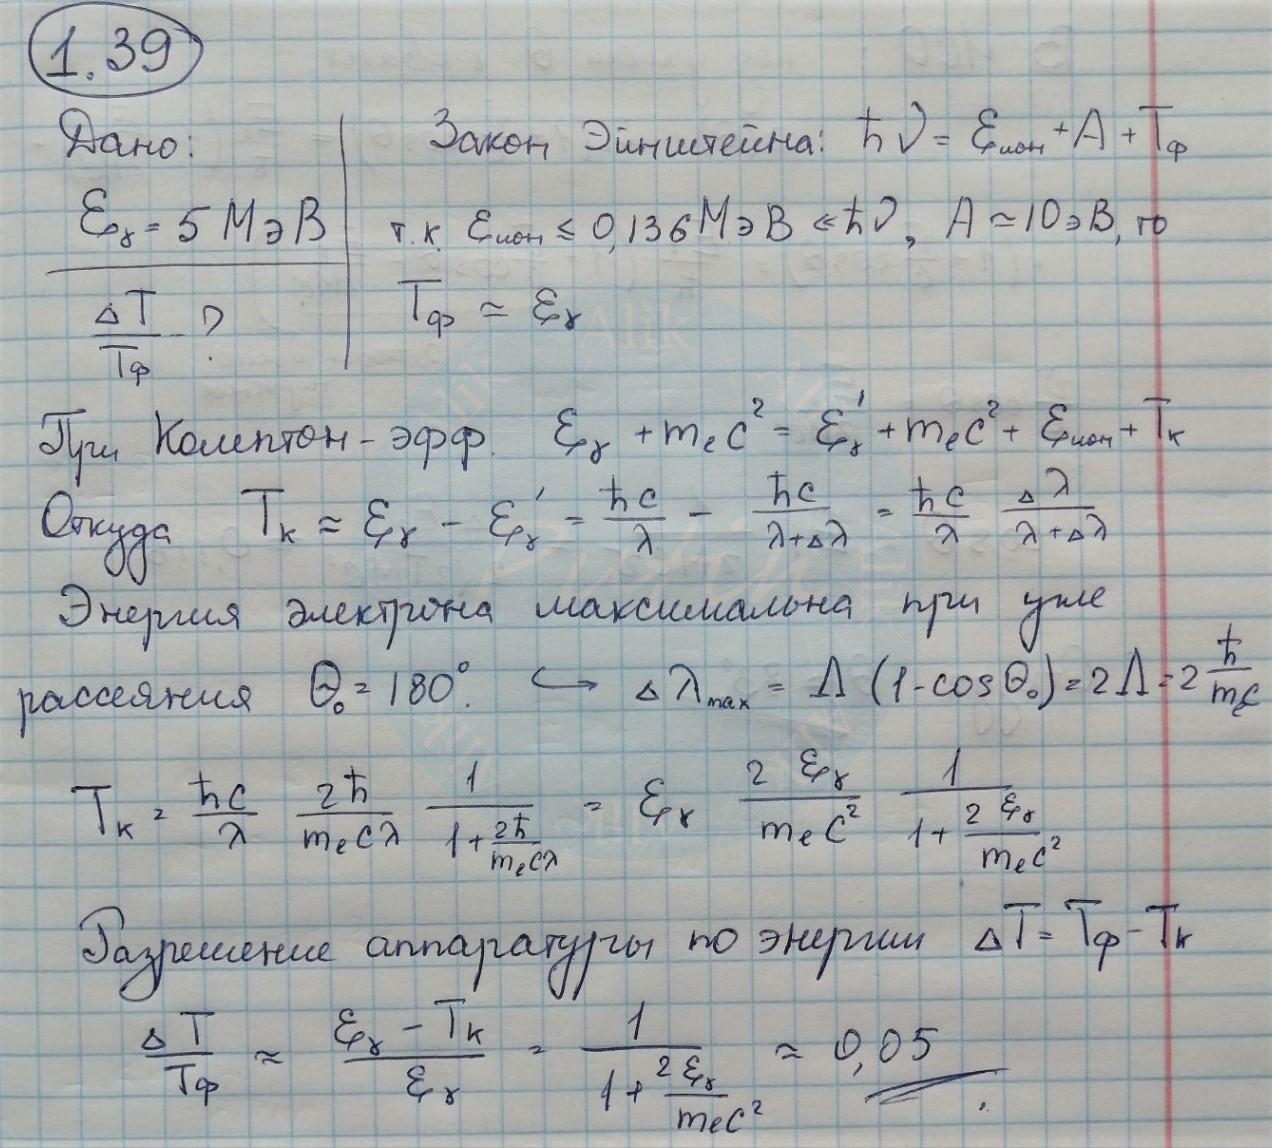 1.39
Дано:
ℰγ = 5 МэВ
ΔT/Tф - ?
Закон Эйнштейна: ħν = ℰион + A + Tф
т.к. ℰион ≤ 0,136 МэВ ≪ ħν, A ≃ 10 эВ, то
Tф ≃ ℰγ
При Комптон-эфф. ℰγ + mₑc² = ℰγ' + mₑc² + ℰион + Tк
Откуда Tк ≈ ℰγ - ℰγ' = ħc/λ - ħc/(λ+Δλ) = ħc/λ Δλ/(λ+Δλ)
Энергия электрона максимальна при угле
рассеяния θ₀ = 180°. ↪ Δλmax = Λ (1-cosθ₀) = 2Λ = 2 ħ/mₑc
Tк = ħc/λ 2ħ/(mₑcλ) 1/(1+2ħ/(mₑcλ)) = ℰγ 2ℰγ/(mₑc²) 1/(1+2ℰγ/(mₑc²))
Разрешение аппаратуры по энергии ΔT = Tф - Tк
ΔT/Tф ≈ (ℰγ - Tк)/ℰγ = 1/(1+2ℰγ/(mₑc²)) ≈ 0,05
Alik